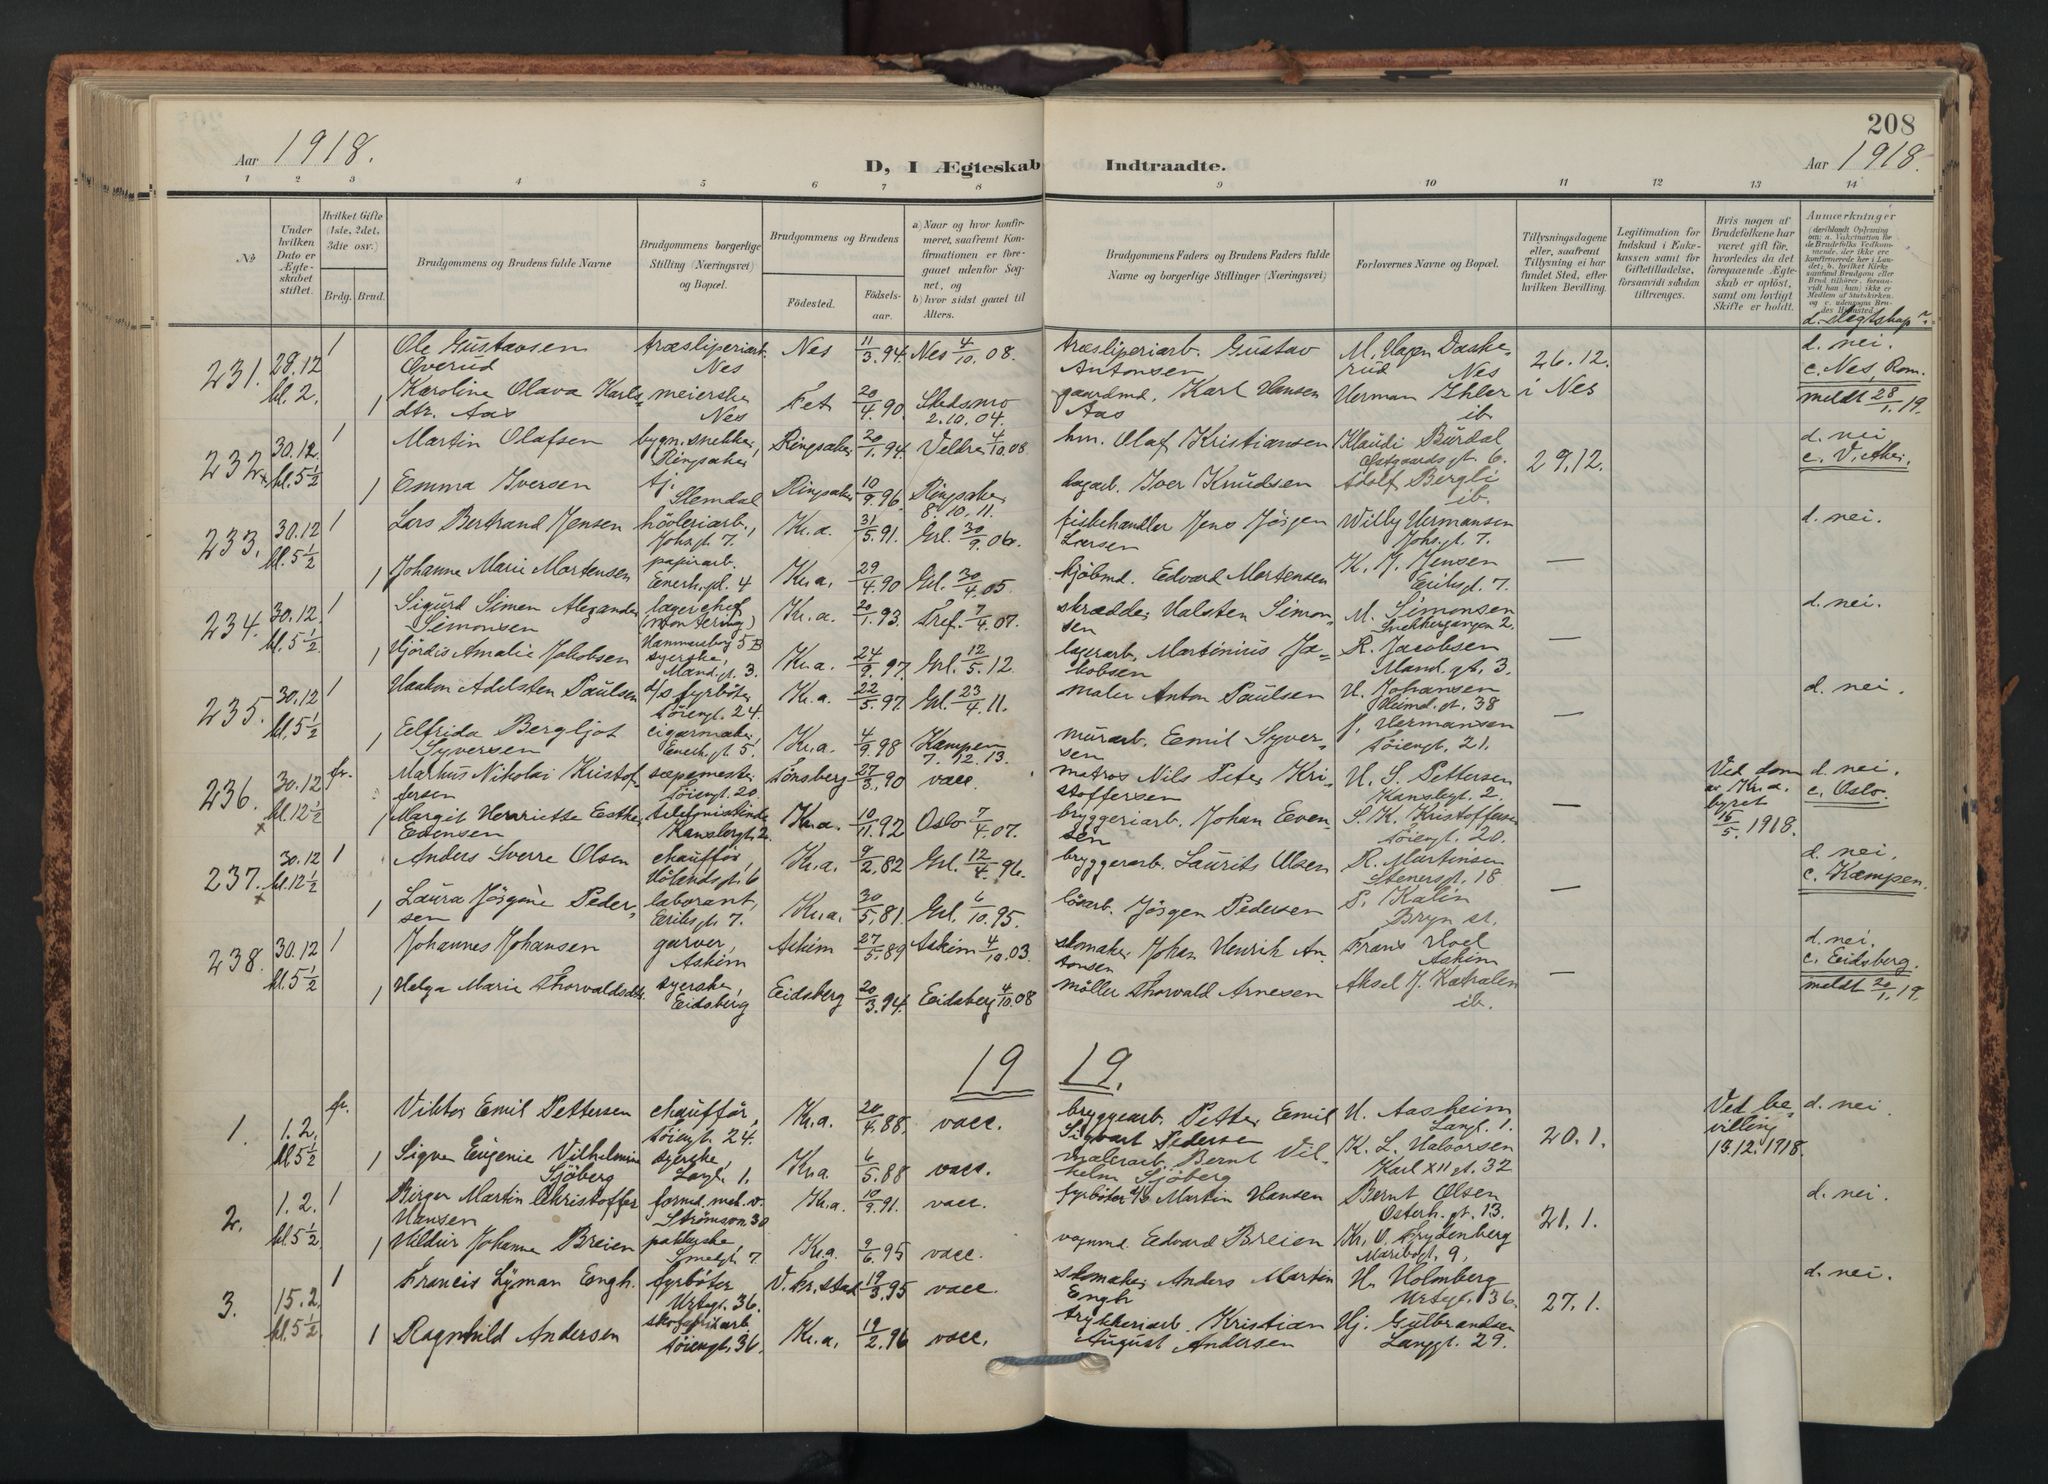 208
Aar 1918.
D, I Ægteskab Indtraadte.
Aar 1918.
1 2 3 4 5 6 7 8 9 10 11 12 13 14
No
Under hvilken Dato er Ægteskabet stiftet.
Hvilket Gifte (1ste, 2det, 3die osv.)
Brdg. Brud.
Brudgommens og Brudens fulde Navne
Brudgommens borgerlige Stilling (Næringsvei) og Bopæl.
Brudgommens og Brudens
Födested. Födselsaar.
a) Naar og hvor konfirmeret, saafremt Konfirmationen er foregaaet udenfor Sognet, og
b) hvor sidst gaaet til Alters.
Brudgommens Faders og Brudens Faders fulde Navne og borgerlige Stillinger (Næringsvei)
Forlovernes Navne og Bopæl.
Tillysningsdagene eller, saafremt Tillysning ei har fundet Sted, efter hvilken Bevilling.
Legitimation for Indskud i Enkekassen samt for Giftetilladelse, forsaavidt saadan tiltrænges.
Hvis nogen af Brudefolkene har været gift för, hvorledes da det foregaaende Ægteskab er oplöst, samt om lovligt Skifte er holdt.
Anmærkninger
d. slegtskap
231. 28.12 kl. 2. 1 Ole Gustavsen Överud træsliperiarb. Nes Nes 11/3.94. Nes 4/10.08. træsliperiarb. Gustav Antonsen M. Hagen Nes 26.12. i Nes d. nei. c. Nes, Rom. meldt 28/1.19.
1 Karoline Olava Karlsdtr. Aas meierske Nes Fet 20/4.90 Skedsmo 2.10.04. gaardmd. Karl Hansen Aas Herman Ihler ib.
232. x 30.12. kl. 5½ 1 Martin Olafsen bygn. snekker, Ringsaker Ringsaker 20/1.94. Veldre 4/10.08 hm. Olaf Kristiansen Klaudi Burdal Östgaardsgt. 6. 29.12. d. nei c. V. Aker.
1 Emma Iversen tj. Slemdal Ringsaker 10/9.96. Ringsaker 8.10.11. dagarb. Iver Knudsen Adolf Bergli ib.
233. 30.12 kl. 5½ 1 Lars Bertrand Jensen hövleriarb., Johsgt. 7. Kr.a. 31/5.91. Grl. 30/9.06. fiskehandler Jens Jörgen Larsen Willy Hermansen Johs.gt. 7. — d. nei.
1 Johanne Marie Mortensen papirarb. Enerh.pl. 4 Kr.a. 29/4.90 Grl. 30/4.05. kjöbmd. Edvard Mortensen K. J. Jensen Eriksgt. 7.
234. 30.12. kl. 5½ 1 Sigurd Simen Alexander Simonsen lagerchef (montering) Hammersborg 5 B Kr.a. 20/1.93. Tref. 7/4.07. skrædder Halsten Simonsen M. Simonsen Snekkergangen 2. — d. nei.
1 Hjördis Amalie Jakobsen syerske, Mand.gt. 3. Kr.a. 24/9.97. Grl. 12/5.12. lagerarb. Martinius Jakobsen R. Jacobsen Mand.gt. 3.
235. 30.12 kl. 5½ 1 Haakon Adelsten Paulsen d/s fyrböter Töiengt. 24. Kr.a. 22/5.97. Grl. 23/4.11. maler Anton Paulsen H. Johansen Heimd.gt. 38 — d. nei.
1 Elfrida Bergljot Syversen cigarmaker, Enerh.gt. 5. Kr.a. 4/9.98 Kampen 7.12.13. murarb. Emil Syversen J. Hermansen Töiengt. 21.
236. x 30.12 kl. 12½ fr. Markus Nikolai Kristoffersen sæpemester Töiengt. 20 Tönsberg 27/3.90 vacc. matros Nils Peter Kristoffersen H. S. Pettersen Kanslergt. 2. — Ved dom av Kr.a. byret 15/5.1918. d. nei. c. Oslo.
1 Margit Henriette Esther Evensen telefonistinde Kanslergt. 2. Kr.a. 10/11.92 Oslo 7/4.07. bryggeriarb. Johan Evensen S. K. Kristoffersen Töiengt. 20.
237. x 30.12 kl. 12½ 1 Anders Sverre Olsen chaufför, Hölandsgt. 6 Kr.a. 9/2.82 Grl. 12/4.96. bryggerarb. Laurits Olsen R. Martinsen Stenersgt. 18. — d. nei. c. Kampen.
1 Laura Jörgine Pedersen laborant, Eriksgt. 7. Kr.a. 30/5.81 Grl. 6/10.95. lösarb. Jörgen Pedersen P. Kalin Bryn st.
238. 30.12 kl. 5½ 1 Johannes Johansen garver, Askim Askim 27/5.89 Askim 4/10.03. skomaker Johan Henrik Antonsen Frans Hoel Askim — d. nei. c. Eidsberg. meldt 20/1.19.
1 Helga Marie Thorvaldsdtr. syerske, Eidsberg Eidsberg 20/3.94. Eidsberg 4/10.08 möller Thorvald Arnesen Aksel J. Katralen ib.
19 19.
1. 1.2. kl 5½ fr. Viktor Emil Pettersen chaufför, Töiengt. 24. Kr.a. 20/4.88. vacc. bryggearb. Petter Emil Sigvart Pedersen H. Aasheim Langt. 1. 20.1. Ved bevilling 13.12.1918. d. nei.
1 Signe Eugenie Vilhelmine Sjöberg syerske, Langt. 1. Kr.a. 6/5.88 vacc. malerarb. Bernt Vilhelm Sjöberg K. L. Halvorsen Karl XII gt. 32
2. 1.2. kl. 5½ 1 Birger Martin Christoffer Hansen formd. mek. v. Strömsvn 30 Kr.a. 10/9.91. vacc. fyrböter d/s Martin Hansen Bernt Olsen Österh.gt. 13. 21.1. d. nei.
1 Hildur Johanne Breien pakkerske Smedgt. 7. Kr.a. 9/6.95 vacc. vognmd. Edvard Breien Kr. O. Frydenberg Maribogt. 9.
3. 15.2. kl. 5½ 1 Francis Lyman Engh. fyrböter Urtegt. 36. V. Fr.stad 19/3.95 vacc. skomaker Anders Martin Engh H. Holmberg Urtegt. 36. 27.1. d. nei.
1 Ragnhild Andersen skofabrikarb. Töiengt. 36. Kr.a. 19/2.96 vacc. trykkeriarb. Kristian August Andersen Hj. Gulbrandsen Langgt. 29.